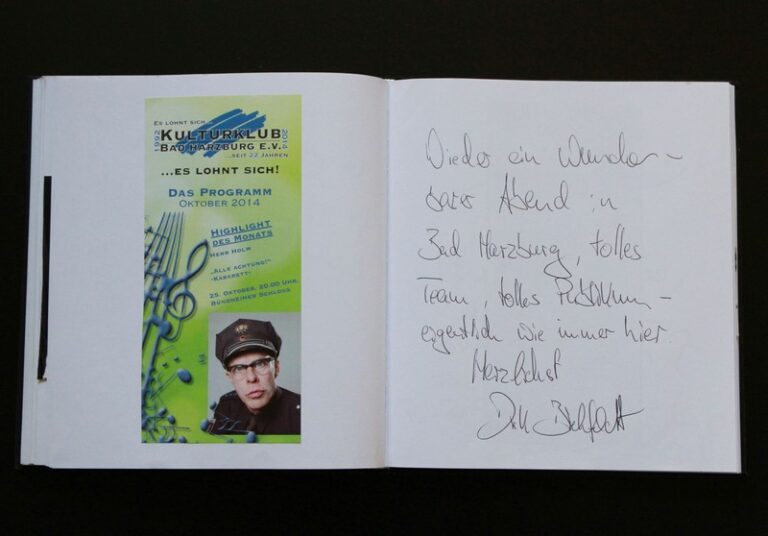 Es lohnt sich...
1992
Kulturklub
2014
Bad Harzburg e.V.
...seit 22 Jahren
...es lohnt sich!
Das Programm
Oktober 2014
Highlight
des Monats
Herr Holm
„Alle Achtung!“
-Kabarett-
25. Oktober, 20.00 Uhr,
Bündheimer Schloss
Wieder ein wunder-
barer Abend in
Bad Harzburg, tolles
Team, tolles Publikum -
eigentlich wie immer hier.
Herzlichst